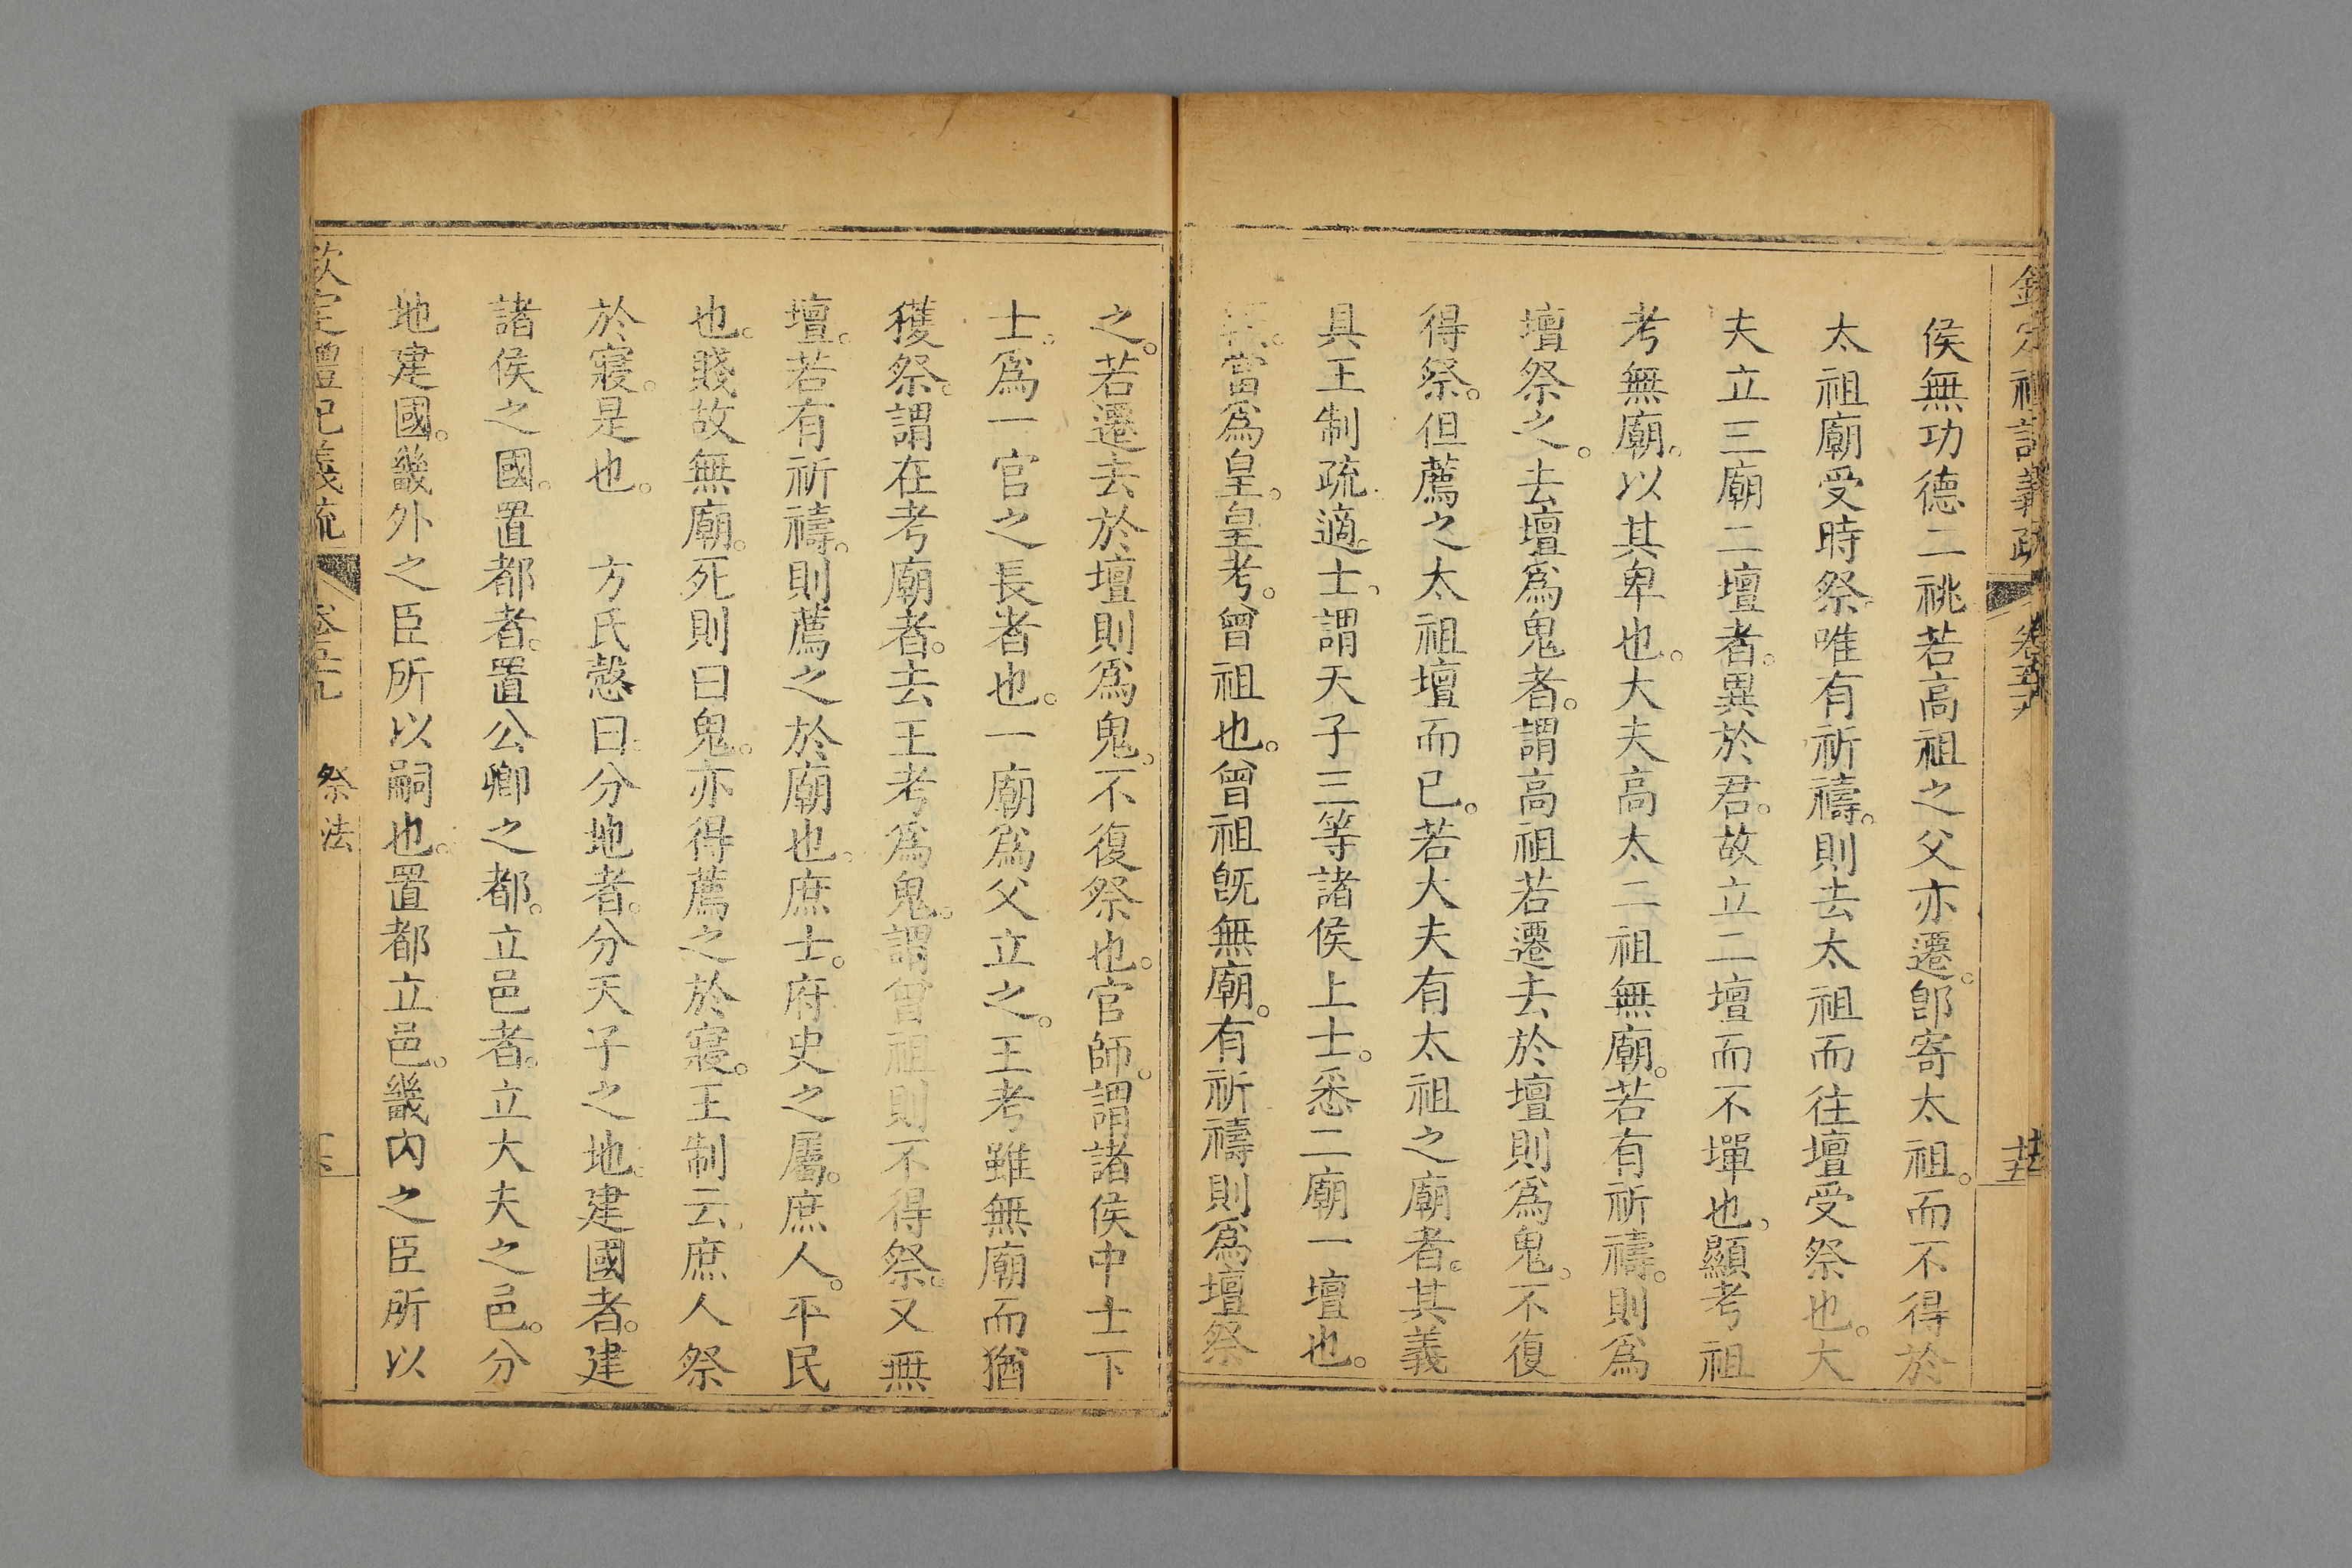 欽定禮記義疏 卷五十九 十五
侯無功德二祧若高祖之父亦遷。卽寄太祖。而不得於
太祖廟受時祭。唯有祈禱。則去太祖而往壇受祭也。大
夫立三廟二壇者。異於君。故立二壇而不墠也。顯考祖
考無廟。以其卑也。大夫高太二祖無廟。若有祈禱。則爲
壇祭之。去壇爲鬼者。謂高祖若遷去於壇則爲鬼。不復
得祭。但薦之太祖壇而已。若大夫有太祖之廟者。其義
具王制疏。適士。謂天子三等諸侯上士。悉二廟一壇也。
當爲皇。皇考。曾祖也。曾祖旣無廟。有祈禱則爲壇祭
之。若遷去於壇則爲鬼。不復祭也。官師。謂諸侯中士下
士。爲一官之長者也。一廟爲父立之。王考雖無廟而猶
獲祭。謂在考廟者。去王考爲鬼。謂曾祖則不得祭。又無
壇。若有祈禱。則薦之於廟也。庶士。府史之屬。庶人。平民
也。賤故無廟。死則曰鬼。亦得薦之於寢。王制云。庶人祭
於寢。是也。 方氏慤曰。分地者。分天子之地。建國者。建
諸侯之國。置都者。置公卿之都。立邑者。立大夫之邑。分
地建國。畿外之臣所以嗣也。置都立邑。畿內之臣所以
欽定禮記義疏 卷五十九 祭法